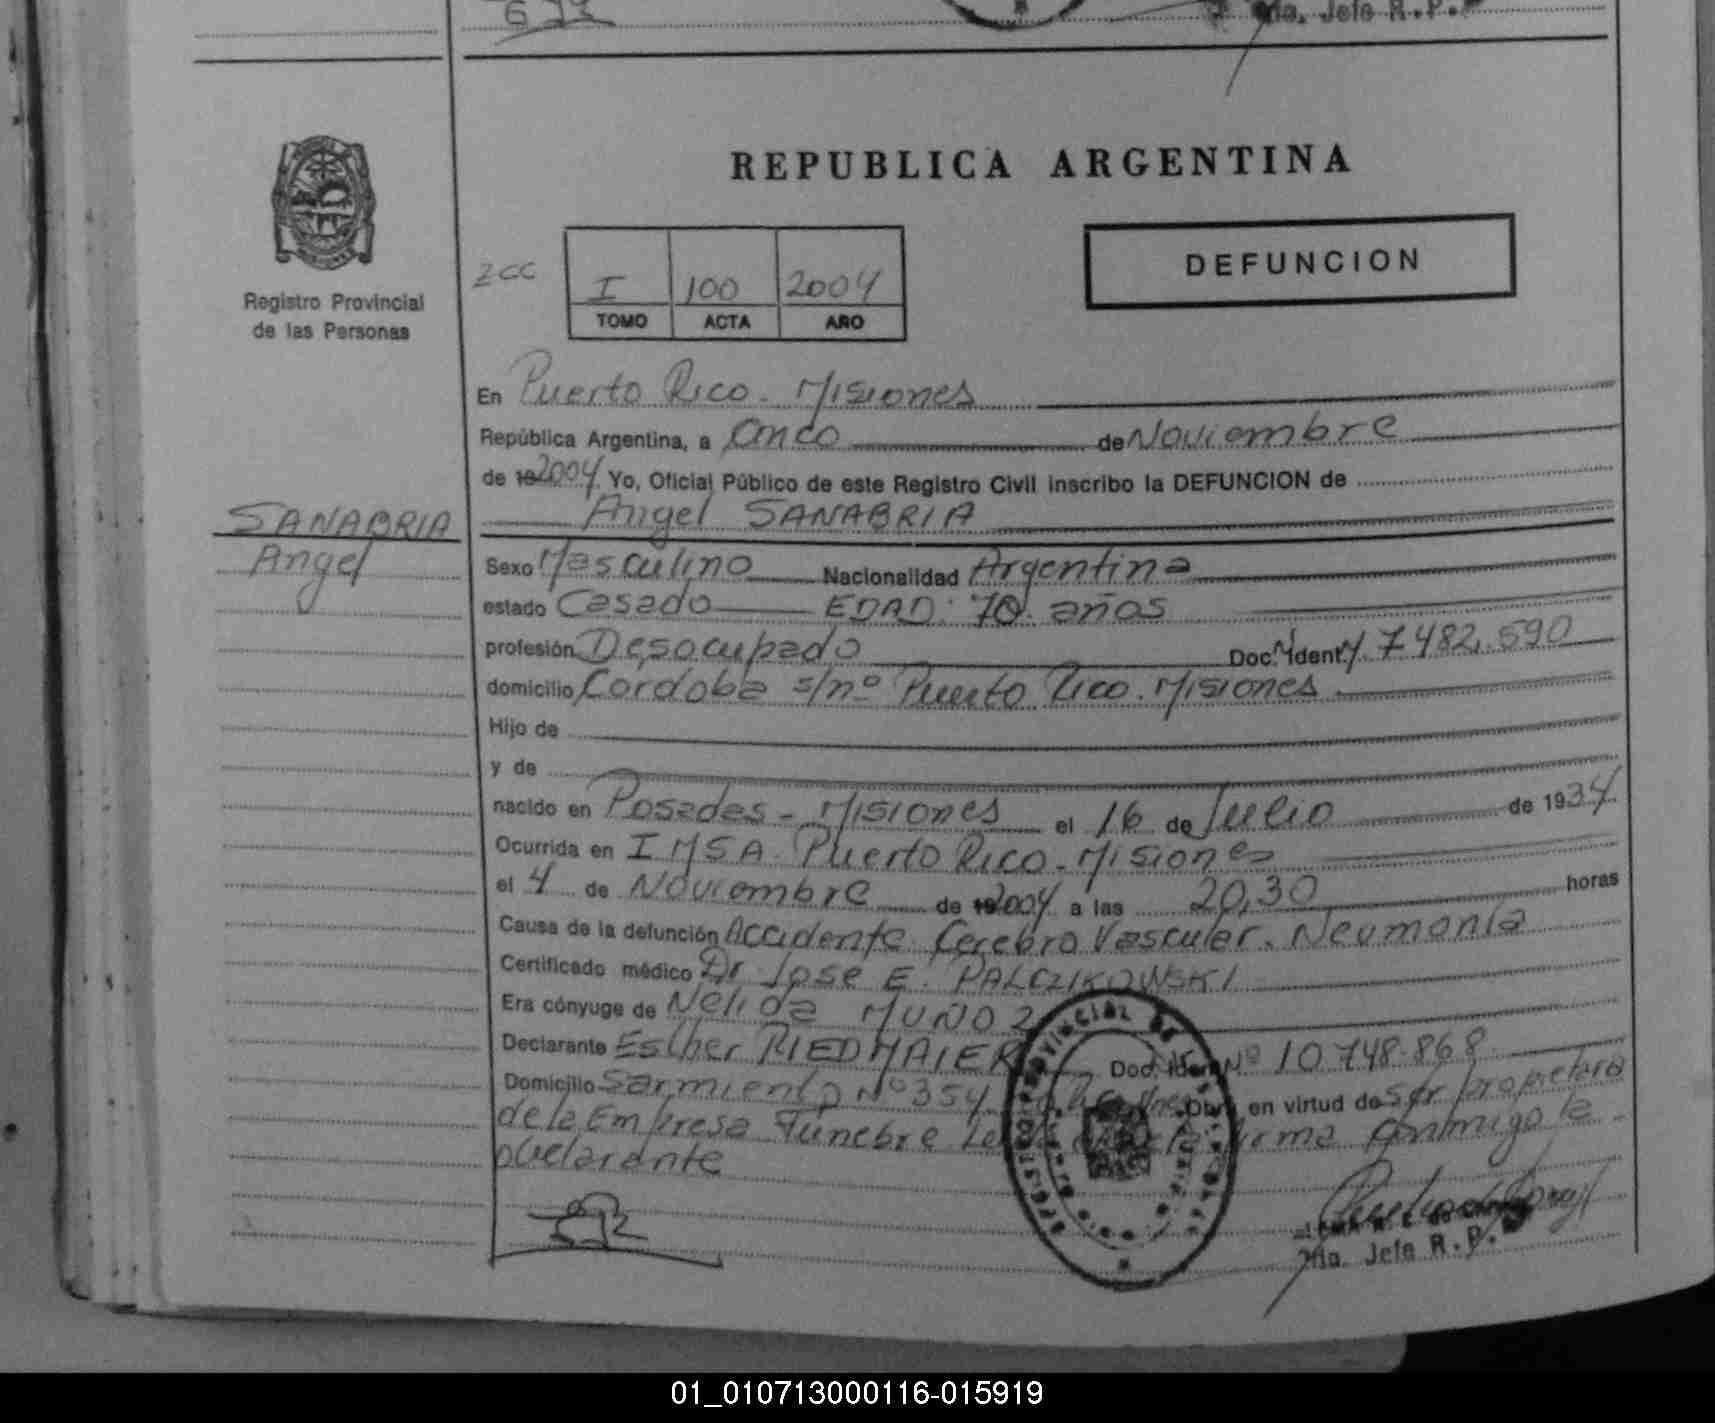 Jefe R.P.
REPUBLICA ARGENTINA
Registro Provincial
de las Personas
I 100 2004
TOMO ACTA AÑO
DEFUNCION
En Puerto Rico - Misiones
República Argentina, a Cinco de Noviembre
de 2004. Yo, Oficial Público de este Registro Civil inscribo la DEFUNCION de
SANABRIA
Angel
Angel SANABRIA
Sexo Masculino Nacionalidad Argentina
estado Casado EDAD: 70 años
profesión Desocupado Doc. Ident. 7.482.590
domicilio Cordoba s/nº Puerto Rico. Misiones
Hijo de
y de
nacido en Posadas - Misiones el 16 de Julio de 1934
Ocurrida en IMSA. Puerto Rico - Misiones
el 4 de Noviembre de 2004 a las 20,30 horas
Causa de la defunción Accidente Cerebro Vascular. Neumonía
Certificado médico Dr Jose E. PALCZIKOWSKI
Era cónyuge de Nelida MUÑOZ
Declarante Esther RIEDMAIER Doc. Ident Nº 10.748.868
Domicilio Sarmiento Nº 354 Obra en virtud de ser propietaria
de la Empresa Fúnebre Leida firma conmigo la
declarante
Jefe R.P.
01_010713000116-015919